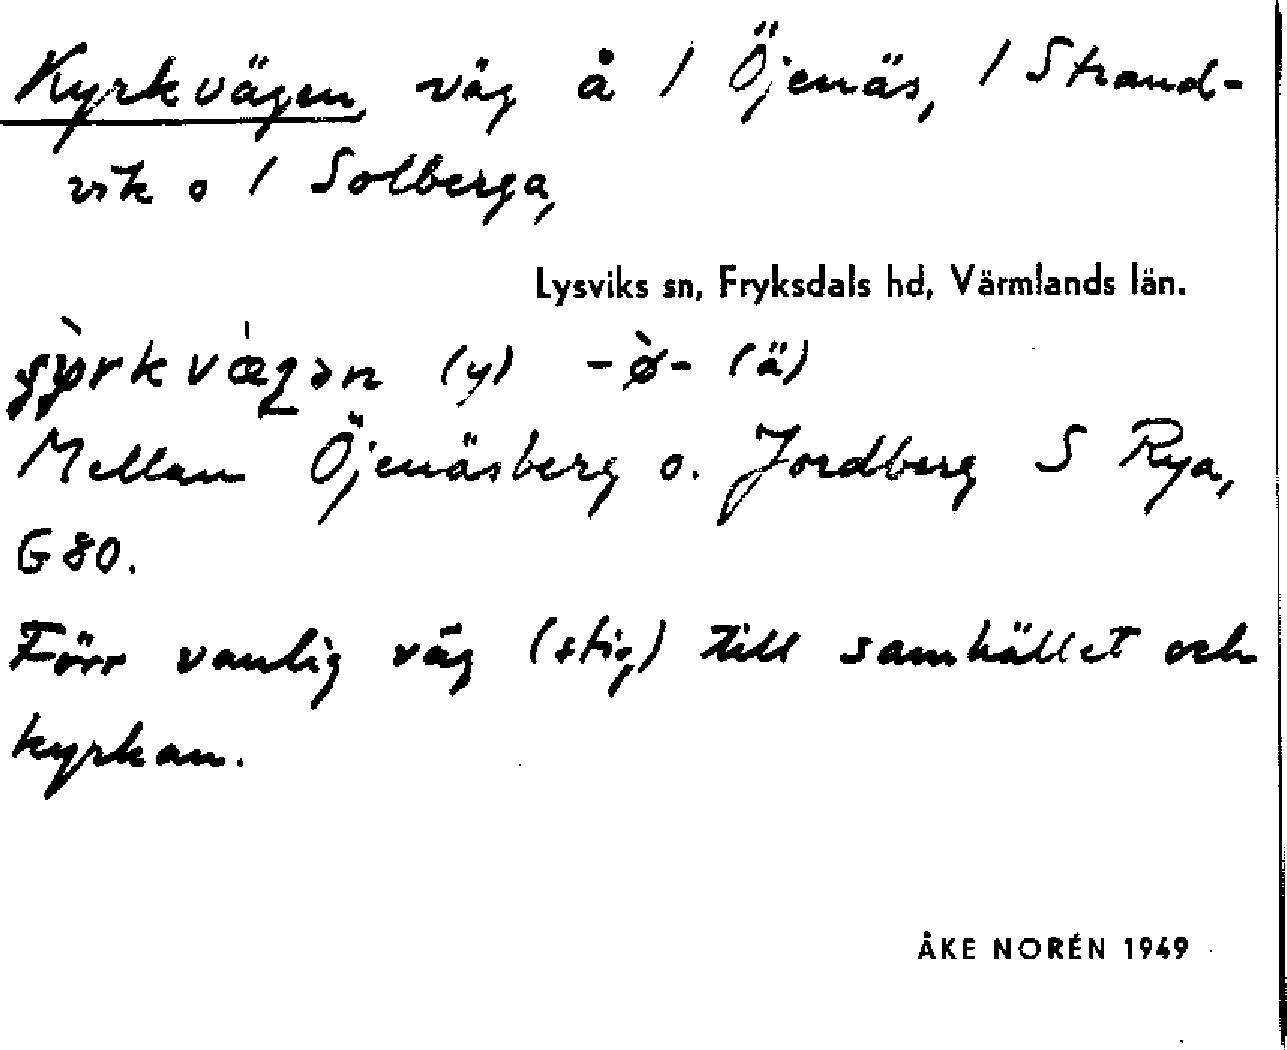 Kyrkvägen, väg å / Öjenäs, / Strand-
vik o / Solberga,
Lysviks sn, Fryksdals hd, Värmlands län.
(y) (ä)
Mellan Öjenäsberg o. Jordberg S Rya,
G80.
Förr vanlig väg (stig) till samhället och
kyrkan.
ÅKE NORÉN 1949